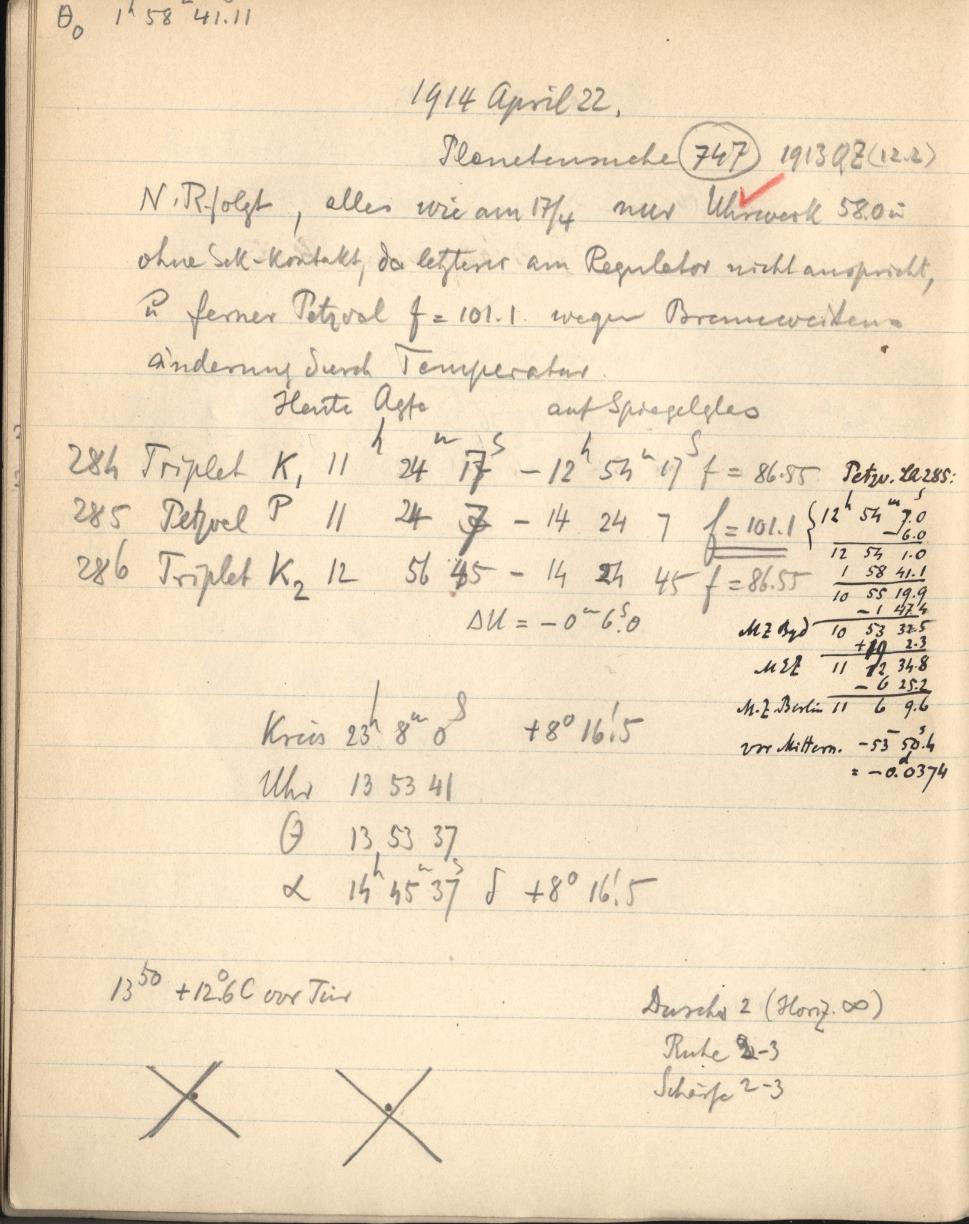 θ₀ 1ʰ 58ᵐ 41.11
1914 April 22.
Planetensuche 747 1913 QZ (12.2)
N.R. folgt, alles wie am 17/4 nur Uhrwerk 58.0 u
ohne Sek-Kontakt, da letzterer am Regulator nicht anspricht,
u ferner Petzval f = 101.1 wegen Brennweiten-
änderung durch Temperatur.
Heute Agfa auf Spiegelglas
284 Triplet K₁ 11ʰ 24ᵐ 17ˢ – 12ʰ 54ᵐ 17ˢ f = 86.55
285 Petzval P 11 24 7 – 14 24 7 f = 101.1
286 Triplet K₂ 12 56 45 – 14 24 45 f = 86.55
ΔU = – 0ᵐ 6ˢ.0
Petzv. 285:
12ʰ 54ᵐ 7ˢ.0
– 6.0
12 54 1.0
1 58 41.1
10 55 19.9
– 1 47.4
MZ Bgd 10 53 32.5
+ 19 2.3
MEZ 11 12 34.8
– 6 25.2
M.Z Berlin 11 6 9.6
vor Mittern. – 53 50ˢ.4
= – 0ᵈ.0374
Kreis 23ʰ 8ᵐ 0ˢ +8° 16'.5
Uhr 13 53 41
θ 13 53 37
α 14ʰ 45ᵐ 37ˢ δ +8° 16'.5
13⁵⁰ +12°.6 C vor Tür
Durchs 2 (Horiz. ∞)
Ruhe 2-3
Schärfe 2-3